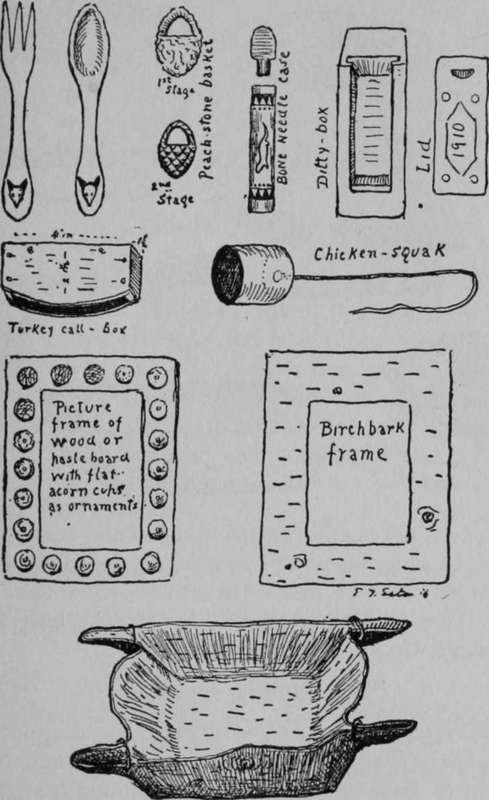 1st
Stage
2nd
Stage
Peach-stone basket
Bone Needle Case
Ditty-box
Lid
1910
4 in
Turkey call-box
Chicken-squak
Picture
frame of
wood or
paste board
with flat
acorn cups
as ornaments
Birchbark
frame